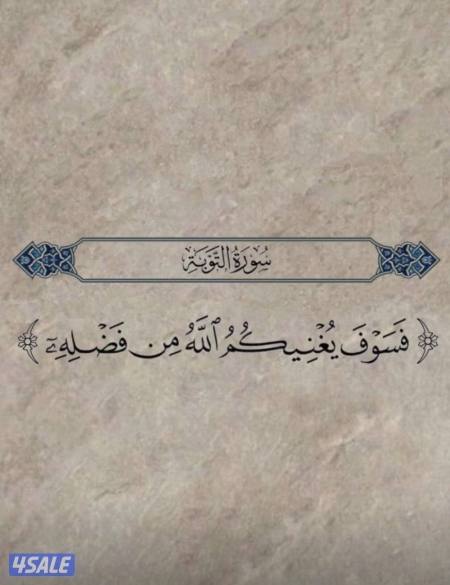 سُورَةُ التَّوۡبَةِ
﴿فَسَوۡفَ يُغۡنِيكُمُ ٱللَّهُ مِن فَضۡلِهِۦٓ﴾
4SALE